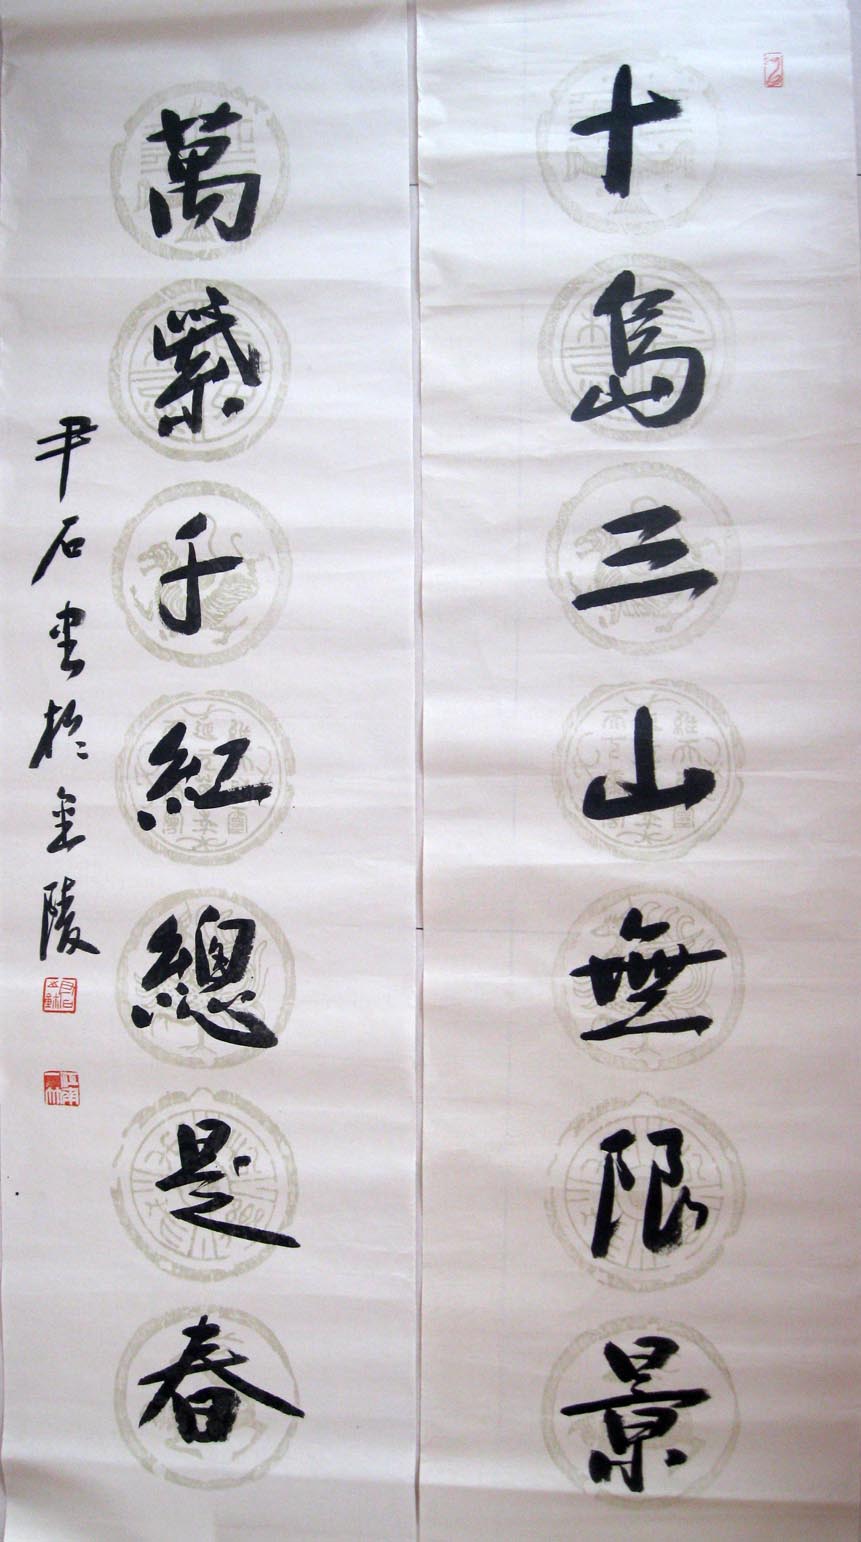 十島三山無限景
萬紫千紅總是春
尹石書於金陵